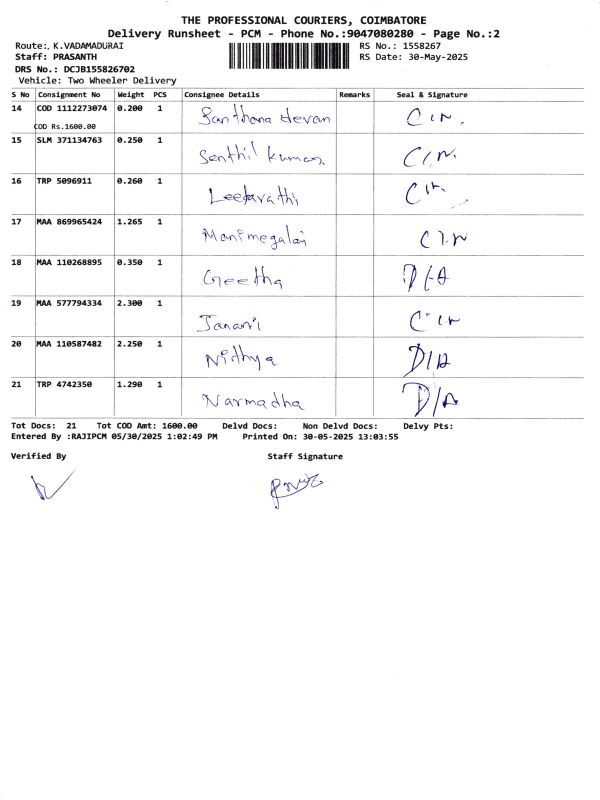 THE PROFESSIONAL COURIERS, COIMBATORE
Delivery Runsheet - PCM - Phone No.:9047080280 - Page No.:2
Route:. K.VADAMADURAI RS No.: 1558267
Staff: PRASANTH RS Date: 30-May-2025
DRS No.: DCJB155826702
Vehicle: Two Wheeler Delivery
S No Consignment No Weight PCS Consignee Details Remarks Seal & Signature
14 COD 1112273074 0.200 1 Santhana devan C/N.
COD Rs.1600.00
15 SLM 371134763 0.250 1 Senthil kumar C/N.
16 TRP 5096911 0.260 1 C/N
17 MAA 869965424 1.265 1 Manimegalai C/N
18 MAA 110268895 0.350 1 Geetha D/A
19 MAA 577794334 2.300 1 Janani C/N
20 MAA 110587482 2.250 1 Nithya D/A
21 TRP 4742350 1.290 1 Narmadha D/A
Tot Docs: 21 Tot COD Amt: 1600.00 Delvd Docs: Non Delvd Docs: Delvy Pts:
Entered By :RAJIPCM 05/30/2025 1:02:49 PM Printed On: 30-05-2025 13:03:55
Verified By Staff Signature